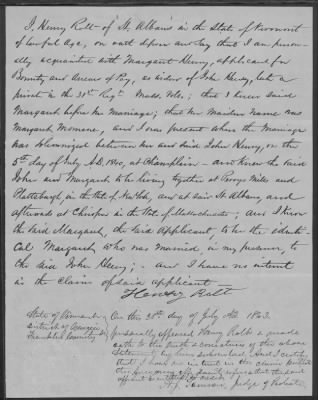 I, Henry Rolt of St. Albans in the State of Vermont
of lawful Age, on oath depose and say that I am person-
ally acquainted with Margaret Henry, applicant for
Bounty and Arrears of Pay, as widow of John Henry, late a
private in the 31st Regt. Mass. Vols; that I knew said
Margaret before her marriage; that her maiden name was
Margaret, and I was present when the marriage
was solemnized between her and said John Henry, on the
5th day of July A.D. 1840, at Champlain - and knew the said
John and Margaret to be living together at Perrys Mills and
Plattsburgh in the State of New York, and at said St Albans, and
afterwards at in the State of Massachusetts; and I know
the said Margaret, the said Applicant, to be the identi-
cal Margaret who was married, in my presence, to
the said John Henry; - and I have no interest
in the claim of said applicant
Henry Rolt
State of Vermont
District of
Franklin County
On this 30th day of July A.D. 1863.
personally appeared Henry Rolt & made
oath to the truth & correctness of the above
statement by him subscribed. And I certify
that I have no interest in the claim
affiant is entitled to credit.
Judge of Probate